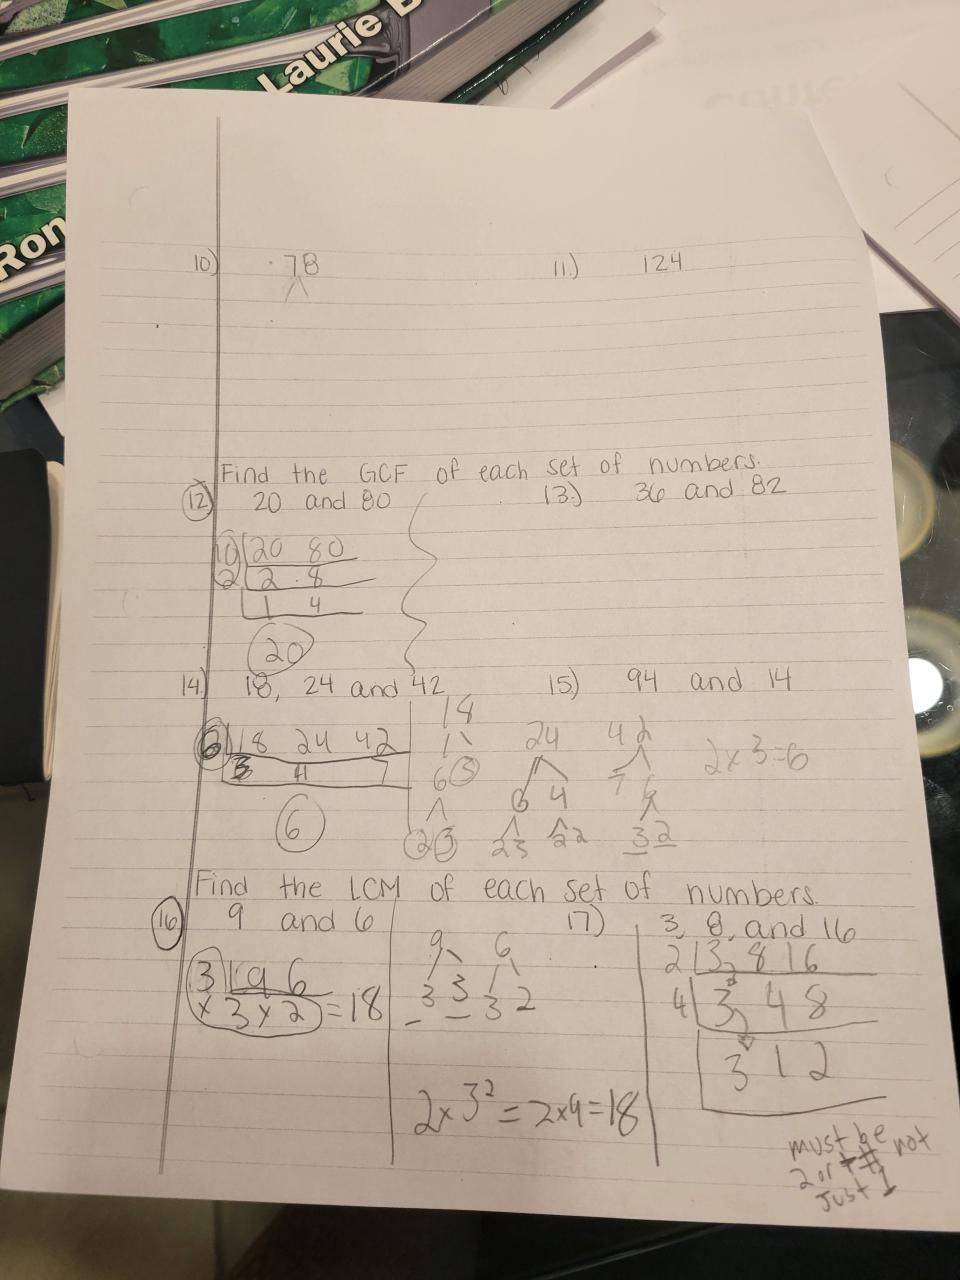 Laurie B
Ron
10) 78
11.) 124
Find the GCF of each set of numbers.
12) 20 and 80
13.) 36 and 82
10 20 80
2 2 8
1 4
20
14.) 18, 24 and 42
15.) 94 and 14
6 18 24 42
3 4 7
6
18
6 3
2 3
24
6 4
2 3 2 2
42
7 6
3 2
2 x 3 = 6
Find the LCM of each set of numbers.
16 9 and 6
17) 3, 8, and 16
3 9 6
x 3 x 2 = 18
9 6
3 3 3 2
2 x 3² = 2 x 9 = 18
2 3, 8 16
4 3 4 8
3 1 2
must be not
2 or + #
just 1